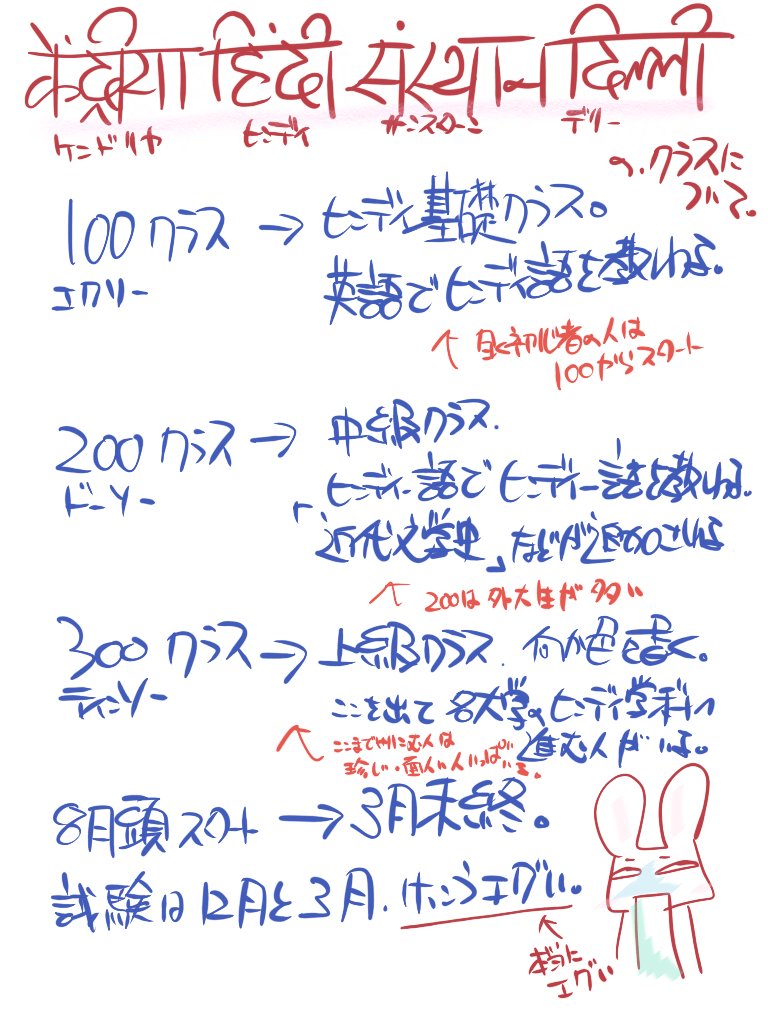 केंद्रीय हिंदी संस्थान दिल्ली
ケンドリヤ ヒンディ サンスターン デリー
の、クラスに
ついて。
100クラス → ヒンディ基礎クラス。
エクソー
英語でヒンディ語を教わる。
↖ 全く初心者の人は
100からスタート
200クラス → 中級クラス.
ドーソー
ヒンディー語でヒンディー語を教わる。
「近代文学史」などが
↖ 200は外大生が多い
300クラス → 上級クラス. 何か色々書く。
ティンソー
ここを出て各大学のヒンディ学科へ
進む人がいる。
↖ ここまでやりこむ人は
珍しい・面白い人いっぱいいる。
8月頭スタート → 3月末終。
試験は12月と3月. けっこうエグい。
↖ 本当に
エグい